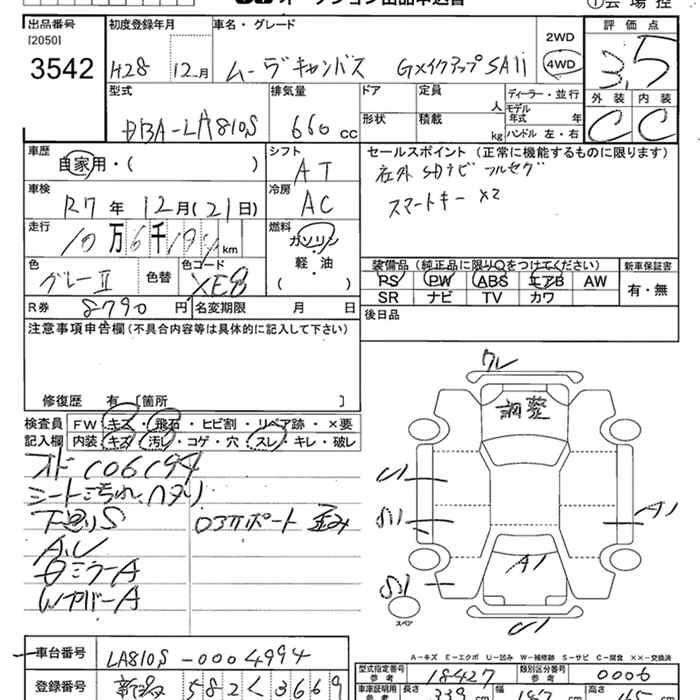 オークション出品申込書 ①会場控
出品番号 初度登録年月 車名・グレード 2WD 評価点
[2050] 3542 H28 12月 ムーヴキャンバス GメイクアップSAII 4WD 3.5
型式 排気量 ドア 定員 人 ディーラー・並行 外装 内装
DBA-LA810S 660cc 形状 積載 kg モデル年式 年 ハンドル 左・右 C C
車歴 シフト セールスポイント(正常に機能するものに限ります)
自家用・( ) AT 社外SDナビ フルセグ
車検 冷房 スマートキー×2
R7年12月(21日) AC
走行 燃料
10万6千 km ガソリン
色 色替 色コード 軽・油 装備品(純正品に限り○をつけてください) 新車保証書
グレーII XE8 ( ) PS PW ABS エアB AW 有・無
R券 8790円 名変期限 月 日 SR ナビ TV カワ
注意事項申告欄(不具合内容等は具体的に記入して下さい) 後日品
修復歴 有 [箇所 ]
検査員 FW・キズ・飛石・ヒビ割・リペア跡・×要
記入欄 内装・キズ・汚レ・コゲ・穴・スレ・キレ・破レ
シート汚れ ハタリ
下廻りS
A.U
WカバーA
ワレ
調整
A1
スペア
A-キズ E-エクボ U-凹み W-補修跡 S-サビ C-腐食 ××-交換済
車台番号 LA810S-0004994
型式指定番号 参考 18427 類別区分番号 参考 0006
登録番号 582 く 3669
車庫証明用 参考 長さ 339cm 幅 cm cm